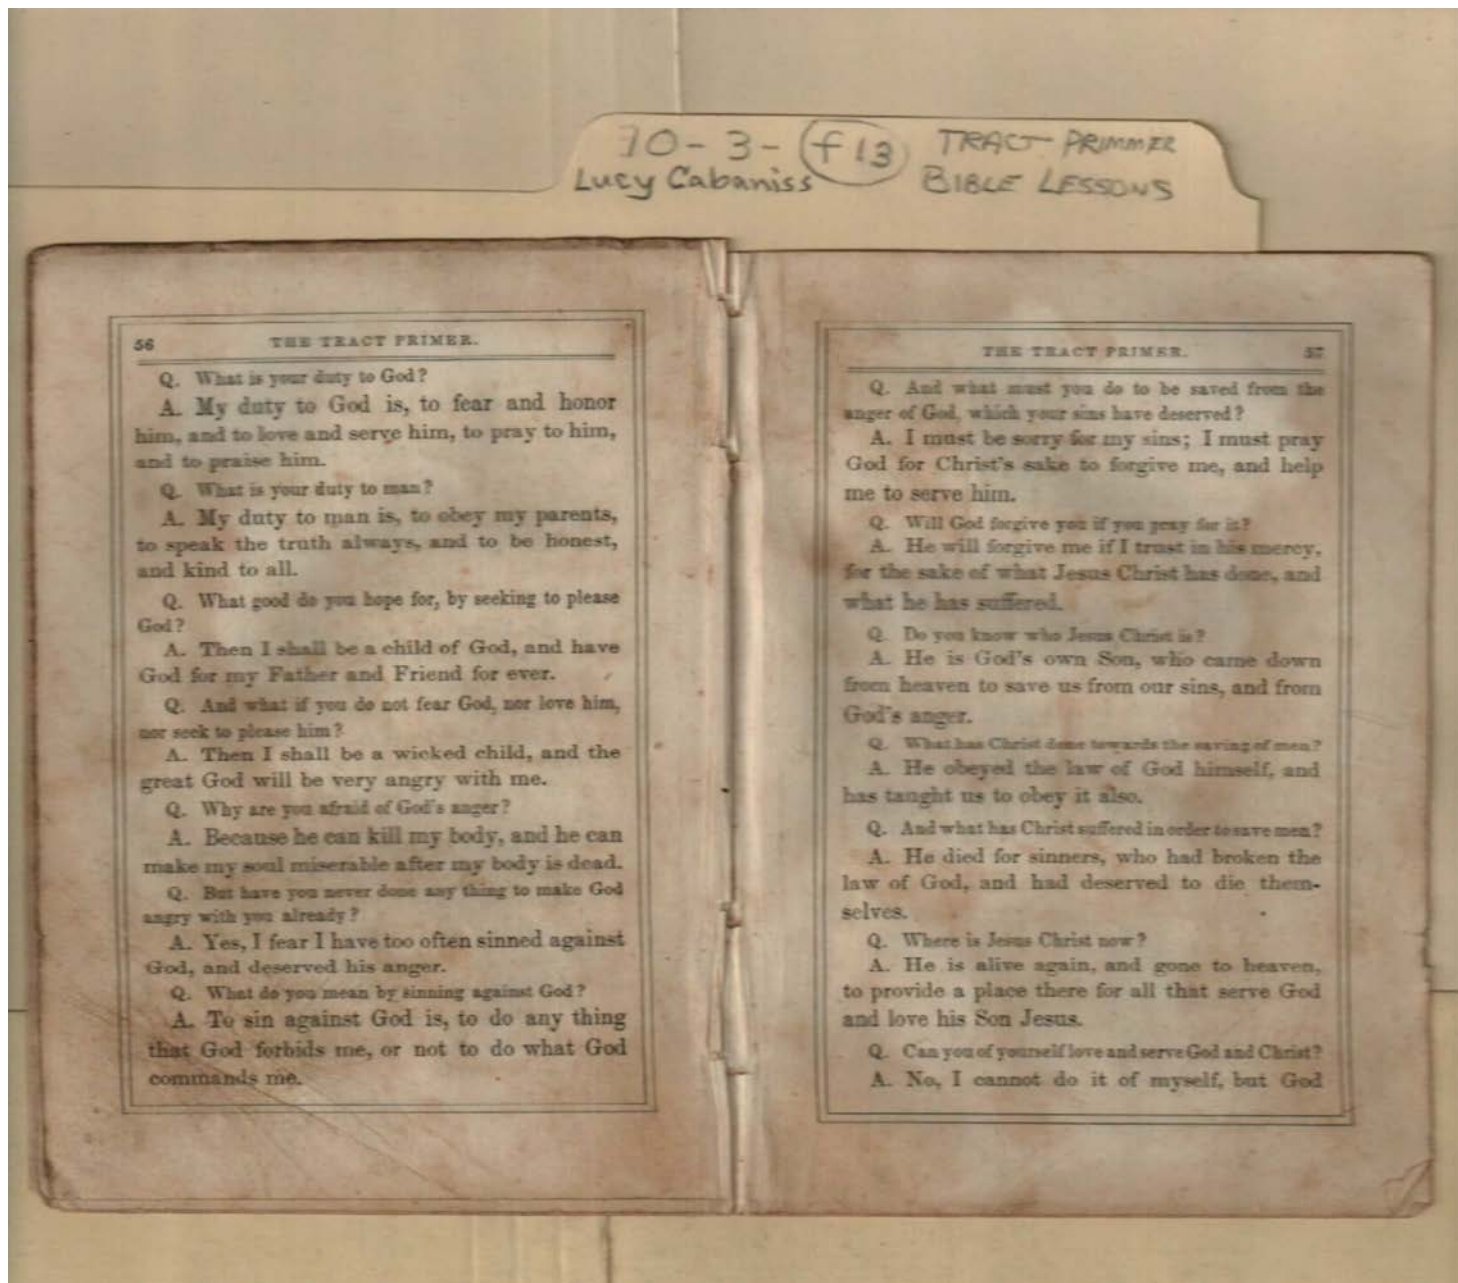 70-3-f13 TRACT PRIMMER
Lucy Cabaniss BIBLE LESSONS
56 THE TRACT PRIMER.
Q. What is your duty to God?
A. My duty to God is, to fear and honor
him, and to love and serve him, to pray to him,
and to praise him.
Q. What is your duty to man?
A. My duty to man is, to obey my parents,
to speak the truth always, and to be honest,
and kind to all.
Q. What good do you hope for, by seeking to please
God?
A. Then I shall be a child of God, and have
God for my Father and Friend for ever.
Q. And what if you do not fear God, nor love him,
nor seek to please him?
A. Then I shall be a wicked child, and the
great God will be very angry with me.
Q. Why are you afraid of God's anger?
A. Because he can kill my body, and he can
make my soul miserable after my body is dead.
Q. But have you never done any thing to make God
angry with you already?
A. Yes, I fear I have too often sinned against
God, and deserved his anger.
Q. What do you mean by sinning against God?
A. To sin against God is, to do any thing
that God forbids me, or not to do what God
commands me.
THE TRACT PRIMER. 57
Q. And what must you do to be saved from the
anger of God, which your sins have deserved?
A. I must be sorry for my sins; I must pray
God for Christ's sake to forgive me, and help
me to serve him.
Q. Will God forgive you if you pray for it?
A. He will forgive me if I trust in his mercy,
for the sake of what Jesus Christ has done, and
what he has suffered.
Q. Do you know who Jesus Christ is?
A. He is God's own Son, who came down
from heaven to save us from our sins, and from
God's anger.
Q. What has Christ done towards the saving of men?
A. He obeyed the law of God himself, and
has taught us to obey it also.
Q. And what has Christ suffered in order to save men?
A. He died for sinners, who had broken the
law of God, and had deserved to die them-
selves.
Q. Where is Jesus Christ now?
A. He is alive again, and gone to heaven,
to provide a place there for all that serve God
and love his Son Jesus.
Q. Can you of yourself love and serve God and Christ?
A. No, I cannot do it of myself, but God